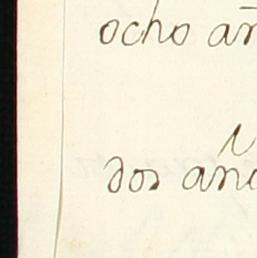 ocho añ
dos aña